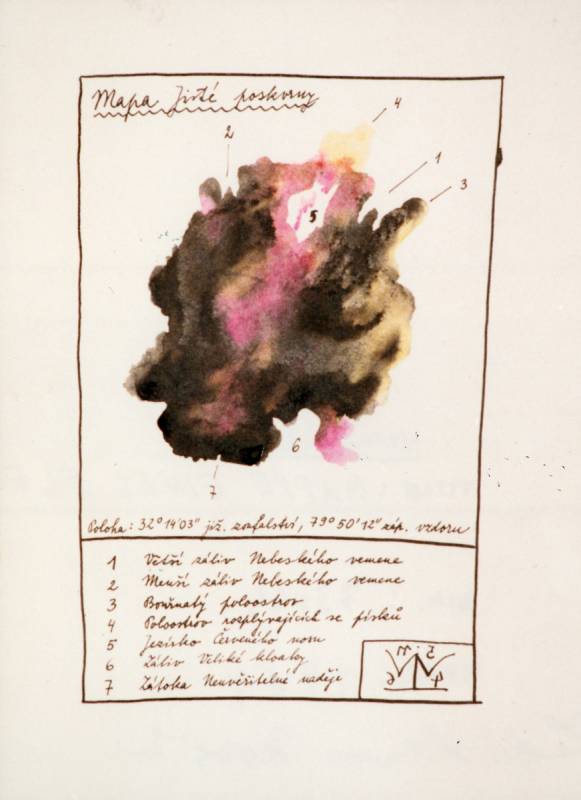 Mapa Jisté poskvrny
4
2
1
3
5
6
7
Poloha: 32° 14' 03" již. zoufalství, 79° 50' 12" záp. vzdoru
1 Větší záliv Nebeského vemene
2 Menší záliv Nebeského vemene
3 Bouřnatý poloostrov
4 Poloostrov rozplývajících se písků
5 Jezírko Červeného nosu
6 Záliv Veliké kloaky
7 Zátoka Neuvěřitelné naděje